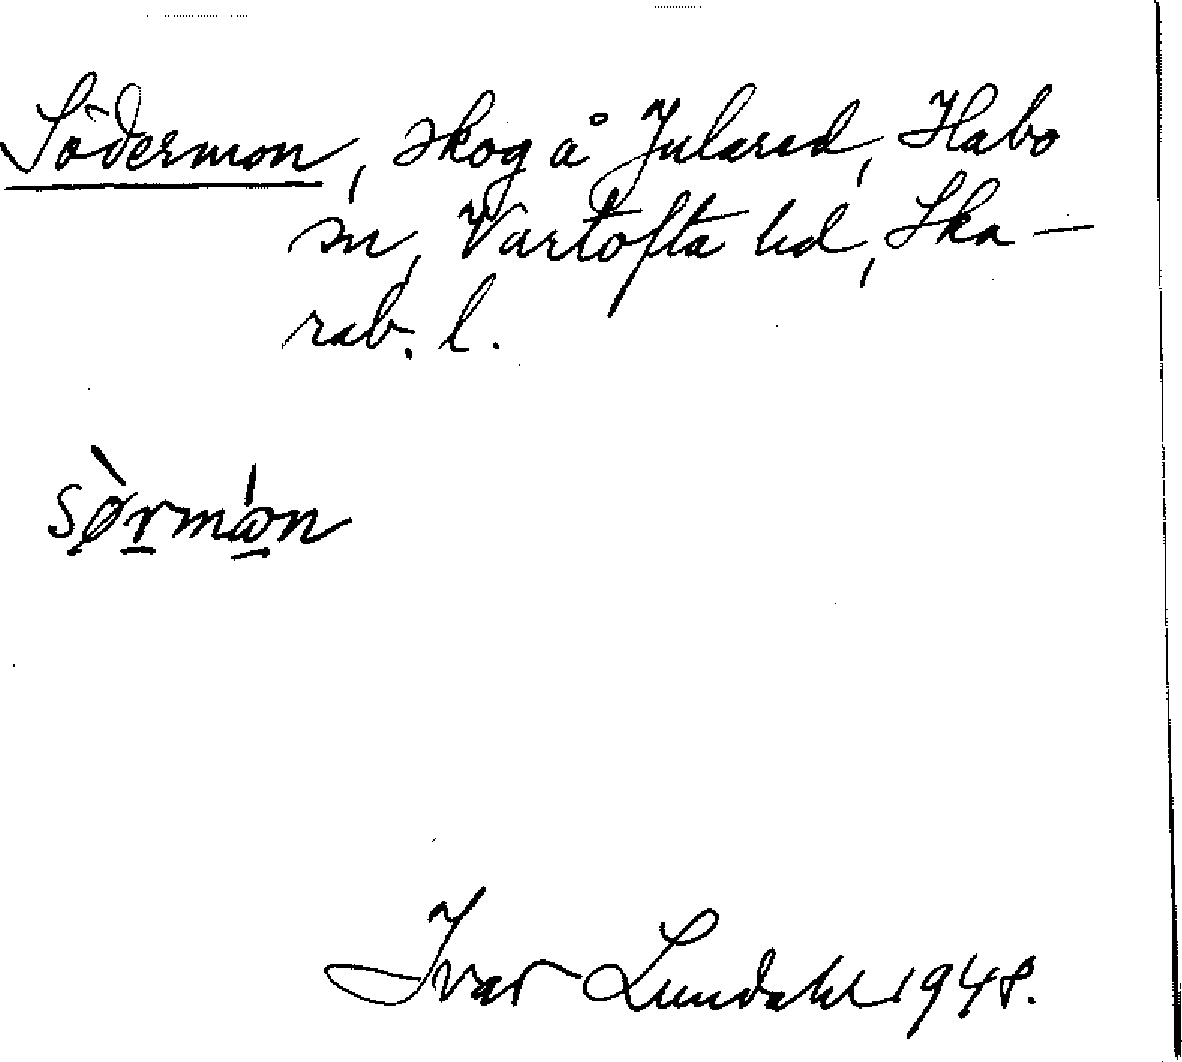 Södermon, skog å Julared, Habo
sn, Vartofta hd, Ska-
rab. l.
sø̀rmån
Ivar Lundahl 1948.